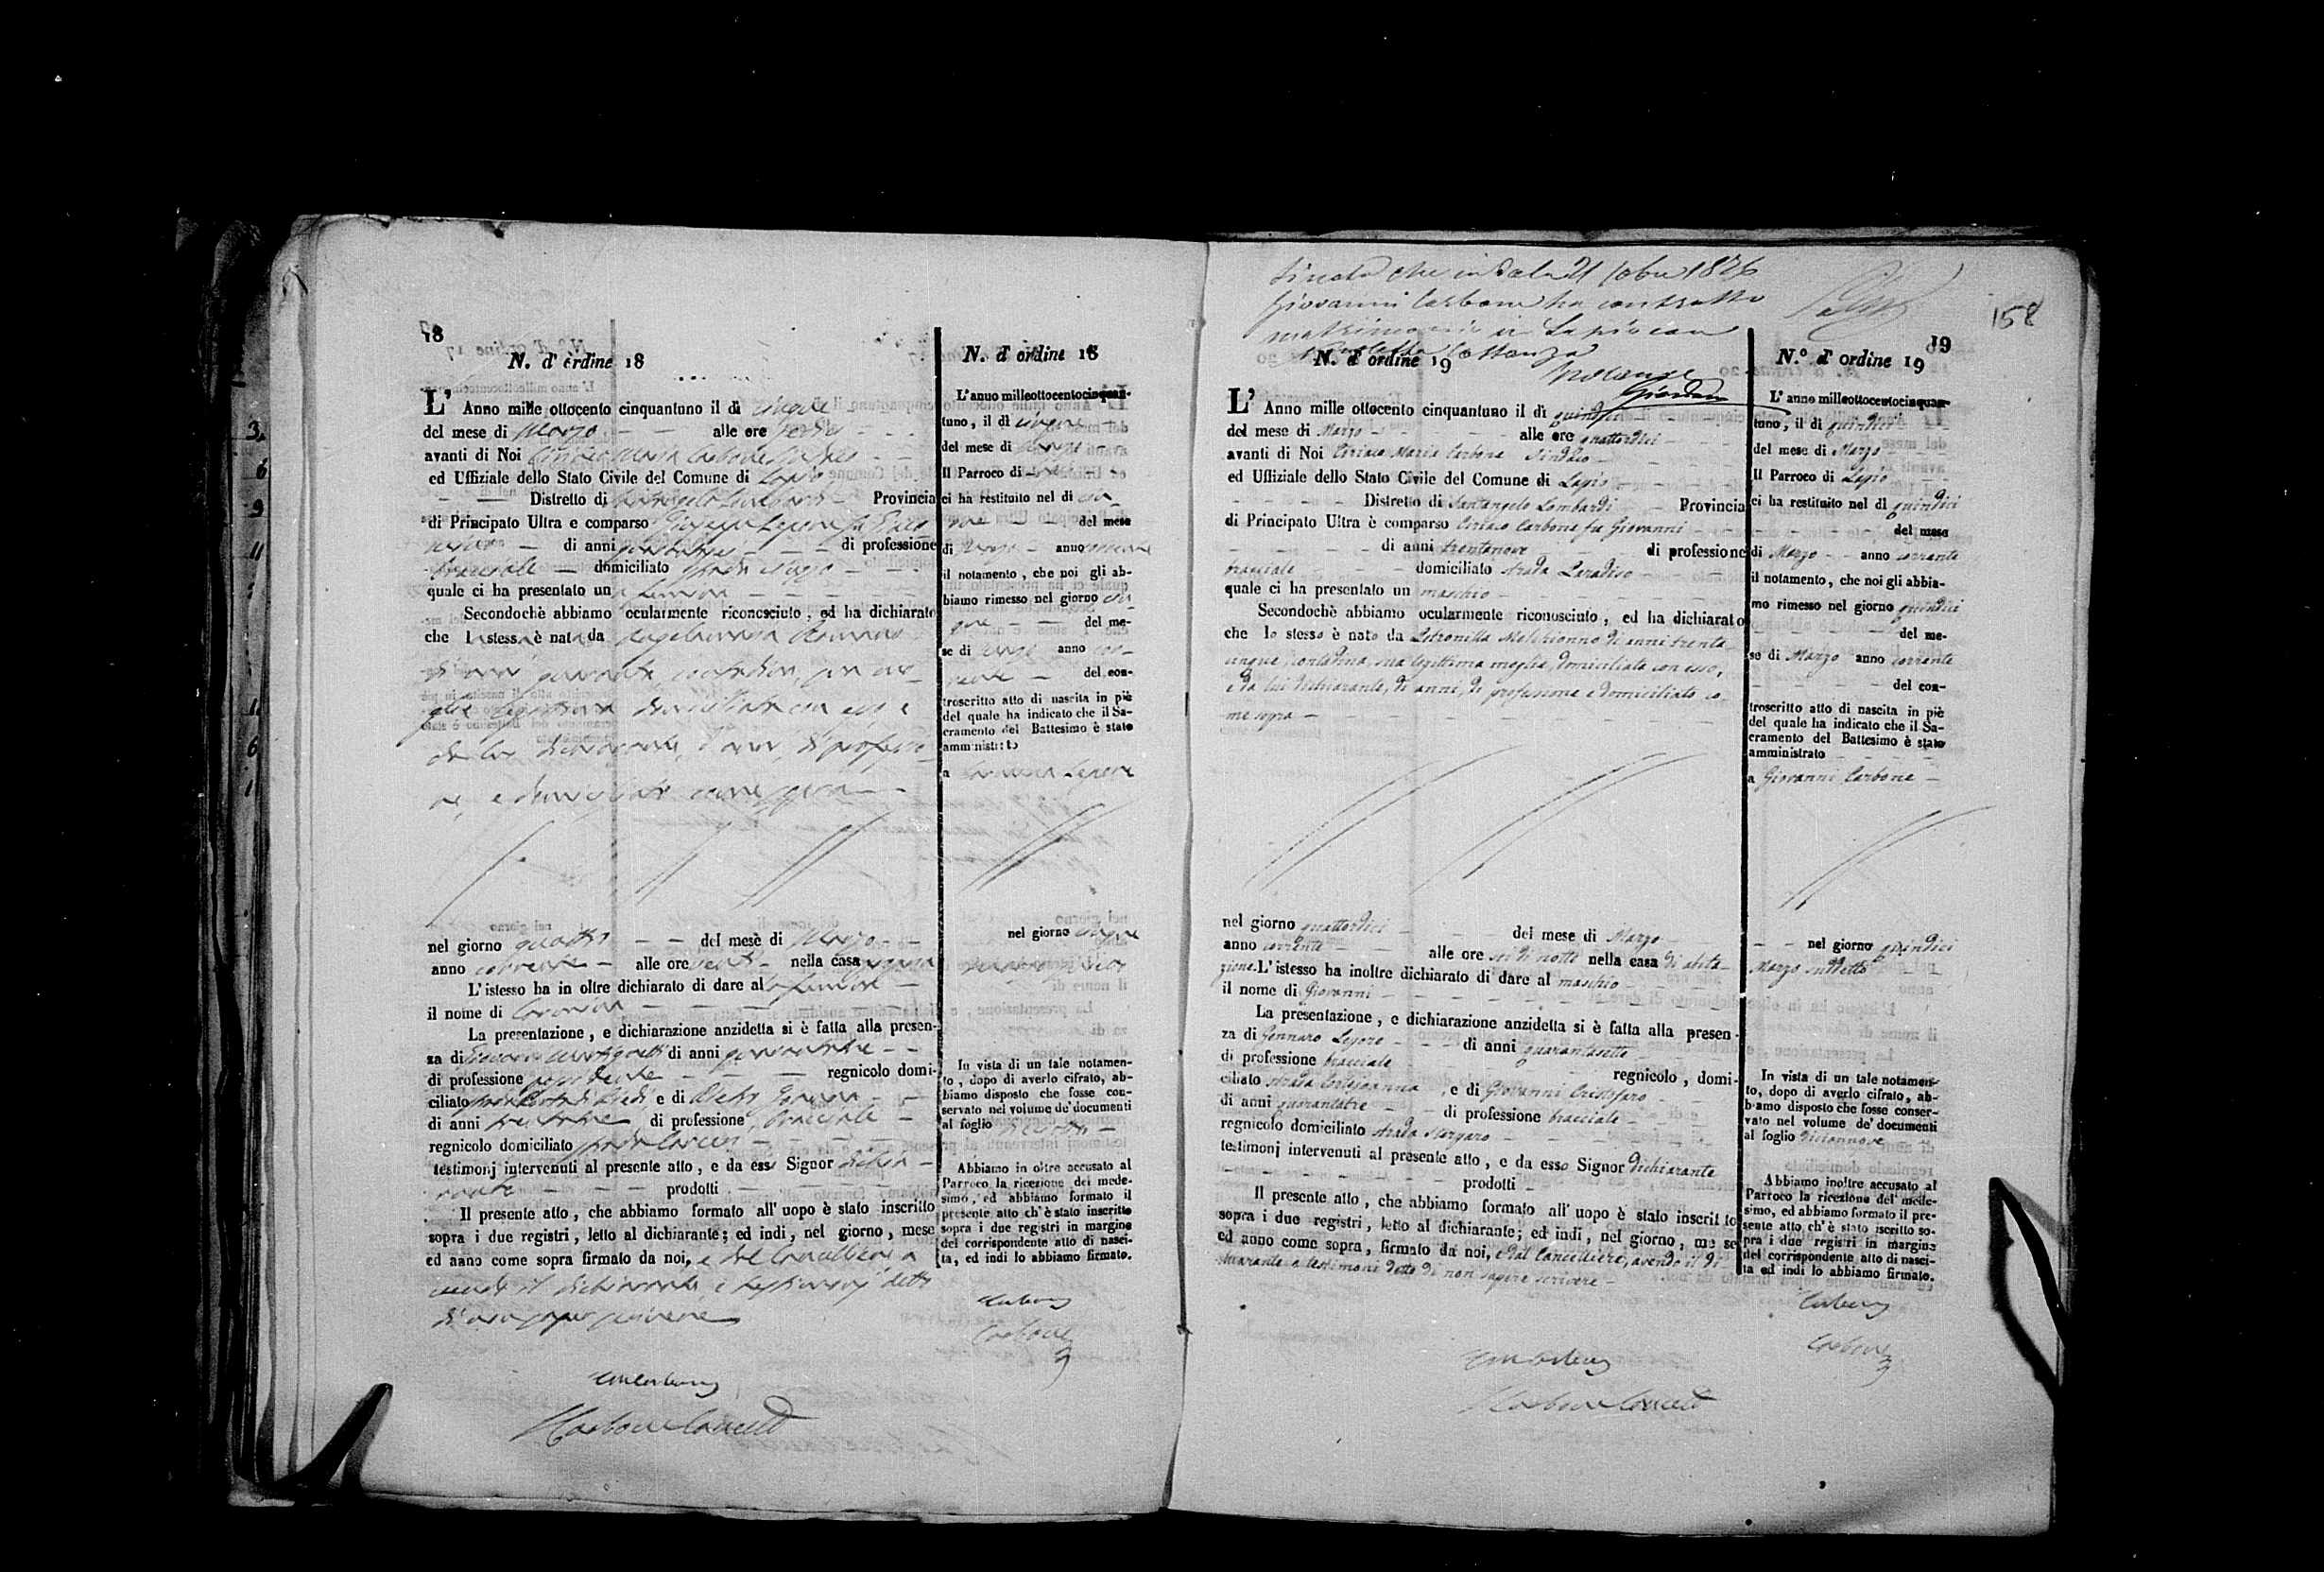 18
N. d' ordine 18
L' Anno mille ottocento cinquantuno il dì cinque
del mese di Marzo — — alle ore
avanti di Noi Ciriaco Maria Carbone Sindaco
ed Uffiziale dello Stato Civile del Comune di Lapio
Distretto di Santangelo Lombardi Provincia
di Principato Ultra è comparso Giuseppe Lepore fu
di anni di professione
bracciale — domiciliato strada
quale ci ha presentato una femina
Secondochè abbiamo ocularmente riconosciuto, ed ha dichiarato
che la stessa è nata da
di anni quaranta, contadina, sua mo-
glie legittima domiciliata con esso e
da lui dichiarante, d'anni, di professio-
ne, e domiciliato come sopra —
nel giorno quattro — — del mese di Marzo
anno corrente — alle ore venti — nella casa
L'istesso ha in oltre dichiarato di dare alla femina —
il nome di
La presentazione, e dichiarazione anzidetta si è fatta alla presen-
za di di anni
di professione regnicolo domi-
ciliato e di
di anni di professione bracciale —
regnicolo domiciliato strada
testimonj intervenuti al presente atto, e da esso Signor dichia-
rante — prodotti
Il presente atto, che abbiamo formato all' uopo è stato inscritto
sopra i due registri, letto al dichiarante; ed indi, nel giorno, mese
ed anno come sopra firmato da noi, e dal Cancelliere a
vendo il dichiarante, e testimonj detto
di non saper scrivere
Carbone Cancell
N. d' ordine 18
L'anno milleottocentocinquan-
tuno, il dì cinque
del mese di Marzo
Il Parroco di
ci ha restituito nel dì cin-
que — — del mese
di Marzo — anno corrente
il notamento, che noi gli ab-
biamo rimesso nel giorno cin-
que — — del me-
se di Marzo anno cor-
rente — del con-
troscritto atto di nascita in piè
del quale ha indicato che il Sa-
cramento del Battesimo è stato
amministrato
a Lepore
nel giorno cinque
In vista di un tale notamen-
to, dopo di averlo cifrato, ab-
biamo disposto che fosse con-
servato nel volume de' documenti
al foglio
Abbiamo in oltre accusato al
Parroco la ricezione dei mede-
simo, ed abbiamo formato il
presente atto ch' è stato inscritto
sopra i due registri in margine
del corrispondente atto di nasci-
ta, ed indi lo abbiamo firmato.
Carbone
158
Giovanni Carbone ha contratto
matrimonio in Lapio con
Costanza
19
N. d' ordine 19
L' Anno mille ottocento cinquantuno il dì quindici
del mese di Marzo — — alle ore quattordici
avanti di Noi Ciriaco Maria Carbone Sindaco
ed Uffiziale dello Stato Civile del Comune di Lapio
Distretto di Santangelo Lombardi — Provincia
di Principato Ultra è comparso Ciriaco Carbone fu Giovanni
di anni trentanove di professione
bracciale domiciliato strada Paradiso
quale ci ha presentato un maschio
Secondochè abbiamo ocularmente riconosciuto, ed ha dichiarato
che lo stesso è nato da Petronilla Melchionno di anni trenta
cinque, contadina, sua legittima moglie, domiciliata con esso,
e da lui dichiarante, di anni, di professione e domiciliato co
me sopra —
nel giorno quattordici — del mese di Marzo
anno corrente alle ore sei di notte nella casa di abita
zione. L'istesso ha inoltre dichiarato di dare al maschio
il nome di Giovanni
La presentazione, e dichiarazione anzidetta si è fatta alla presen-
za di Gennaro Lepore di anni quarantasette
di professione bracciale regnicolo, domi-
ciliato strada Cortejoanna, e di Giovanni Cristofaro
di anni quarantatre di professione bracciale
regnicolo domiciliato strada Morgaro
testimonj intervenuti al presente atto, e da esso Signor dichiarante
prodotti
Il presente atto, che abbiamo formato all' uopo è stato inscritto
sopra i due registri, letto al dichiarante; ed indi, nel giorno, mese
ed anno come sopra, firmato da noi, e dal Cancelliere, avendo il di
chiarante e testimoni detto di non sapere scrivere —
Carbone Cancell
N.° d' ordine 19
L'anno milleottocentocinquan-
tuno, il dì quindici
del mese di Marzo
Il Parroco di Lapio
ci ha restituito nel dì quindici
del mese
di Marzo — anno corrente
il notamento, che noi gli abbia-
mo rimesso nel giorno quindici
del me-
se di Marzo anno corrente
del con-
troscritto atto di nascita in piè
del quale ha indicato che il Sa-
cramento del Battesimo è stato
amministrato
a Giovanni Carbone
nel giorno quindici
Marzo suddetto
In vista di un tale notamen-
to, dopo di averlo cifrato, ab-
biamo disposto che fosse conser-
vato nel volume de' documenti
al foglio diciannove
Abbiamo inoltre accusato al
Parroco la ricezione del mede-
simo, ed abbiamo formato il pre-
sente atto ch'è stato iscritto so-
pra i due registri in margine
del corrispondente atto di nasci-
ta ed indi lo abbiamo firmato.
Carbone